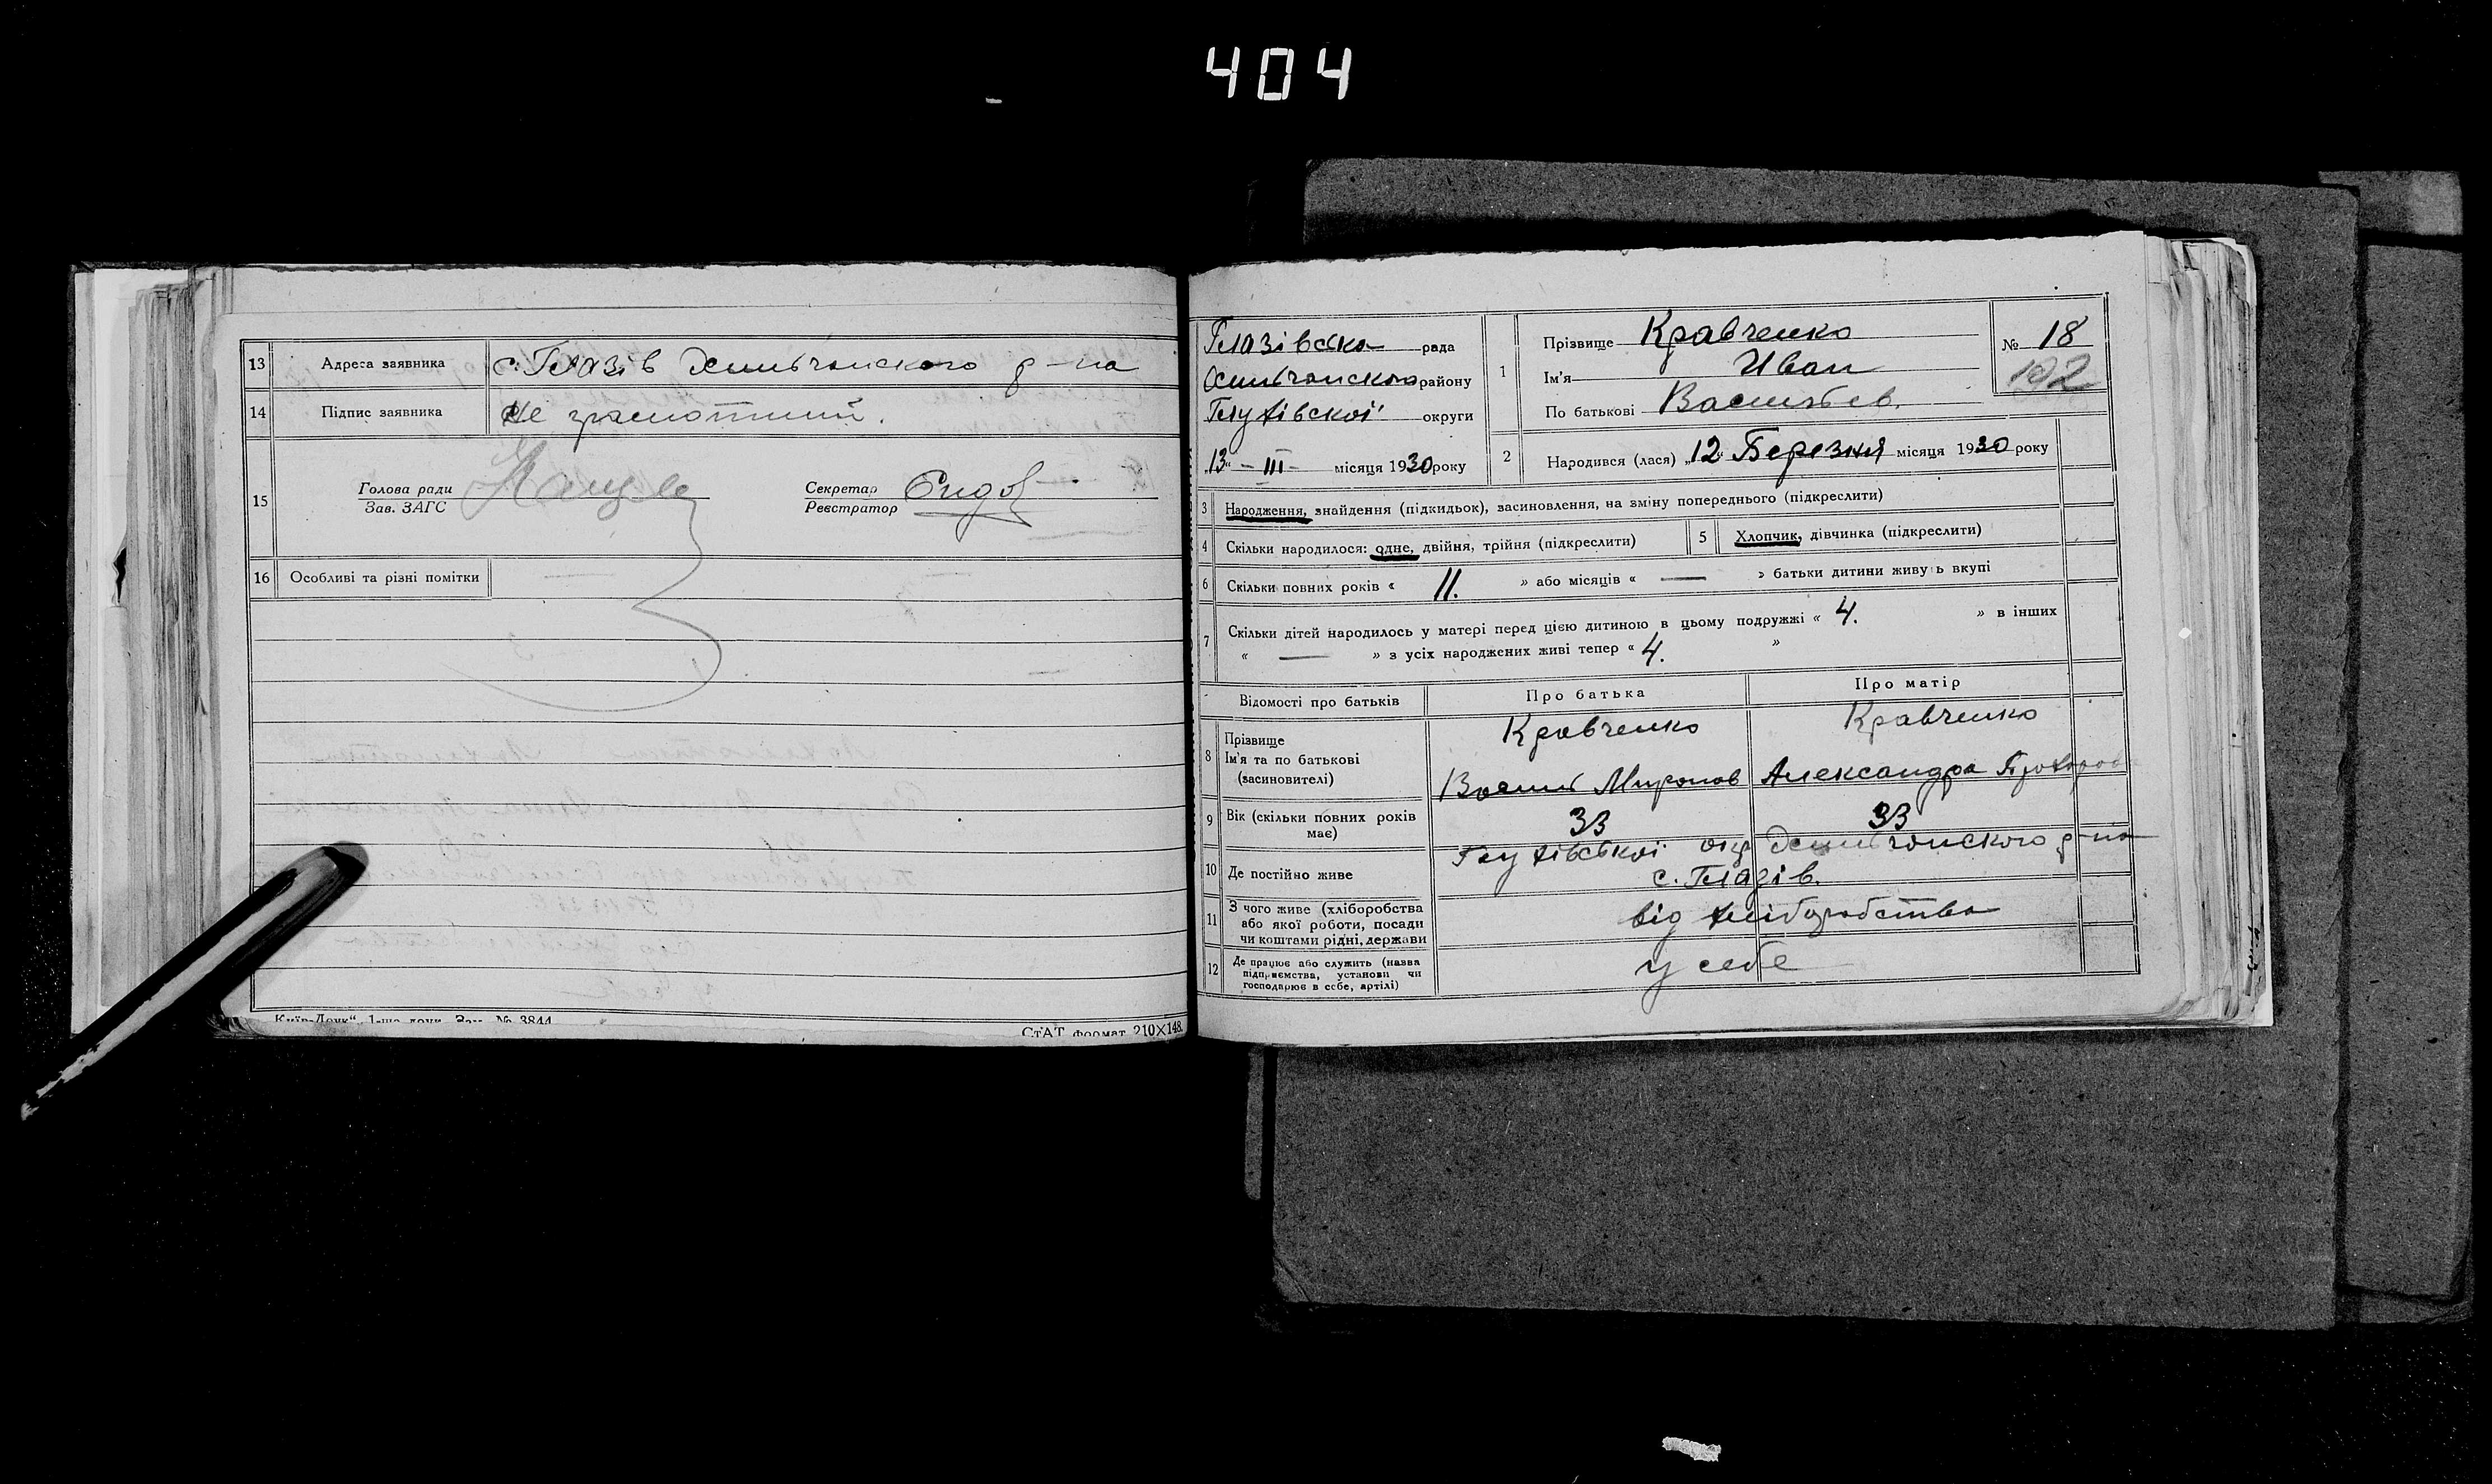 404
13 Адреса заявника с. Глазів Хильчанського р-на
14 Підпис заявника Не грамотний.
15 Голова ради
Зав. ЗАГС
Секретар
Реєстратор
16 Особливі та різні помітки —
Київ-Друк“ 1-ша друк. Зам. № 3844
СтАТ формат 210×148.
Глазівська рада
району
Глухівскої округи
„13“ - III - місяця 1930 року
1 Прізвище Кравченко
Ім'я Иван
По батькові Васильев.
№ 18
192
2 Народився (лася) „12“ Березня місяця 1930 року
3 Народження, знайдення (підкидьок), засиновлення, на зміну попереднього (підкреслити)
4 Скільки народилося: одне, двійня, трійня (підкреслити)
5 Хлопчик, дівчинка (підкреслити)
6 Скільки повних років « 11. » або місяців « — » батьки дитини живуть вкупі
7 Скільки дітей народилось у матері перед цією дитиною в цьому подружжі « 4. » в інших
« — » з усіх народжених живі тепер « 4. »
Відомості про батьків Про батька Про матір
8 Прізвище
Ім'я та по батькові
(засиновителі)
Кравченко Кравченко
Василь Миронов Александра Прохоров
9 Вік (скільки повних років має) 33 33
10 Де постійно живе
Глухівської окр р-на
с. Глазів.
11 З чого живе (хліборобства
або якої роботи, посади
чи коштами рідні, держави
від хліборобства
12 Де працює або служить (назва
підприємства, установи чи
господарює в себе, артілі)
у себе